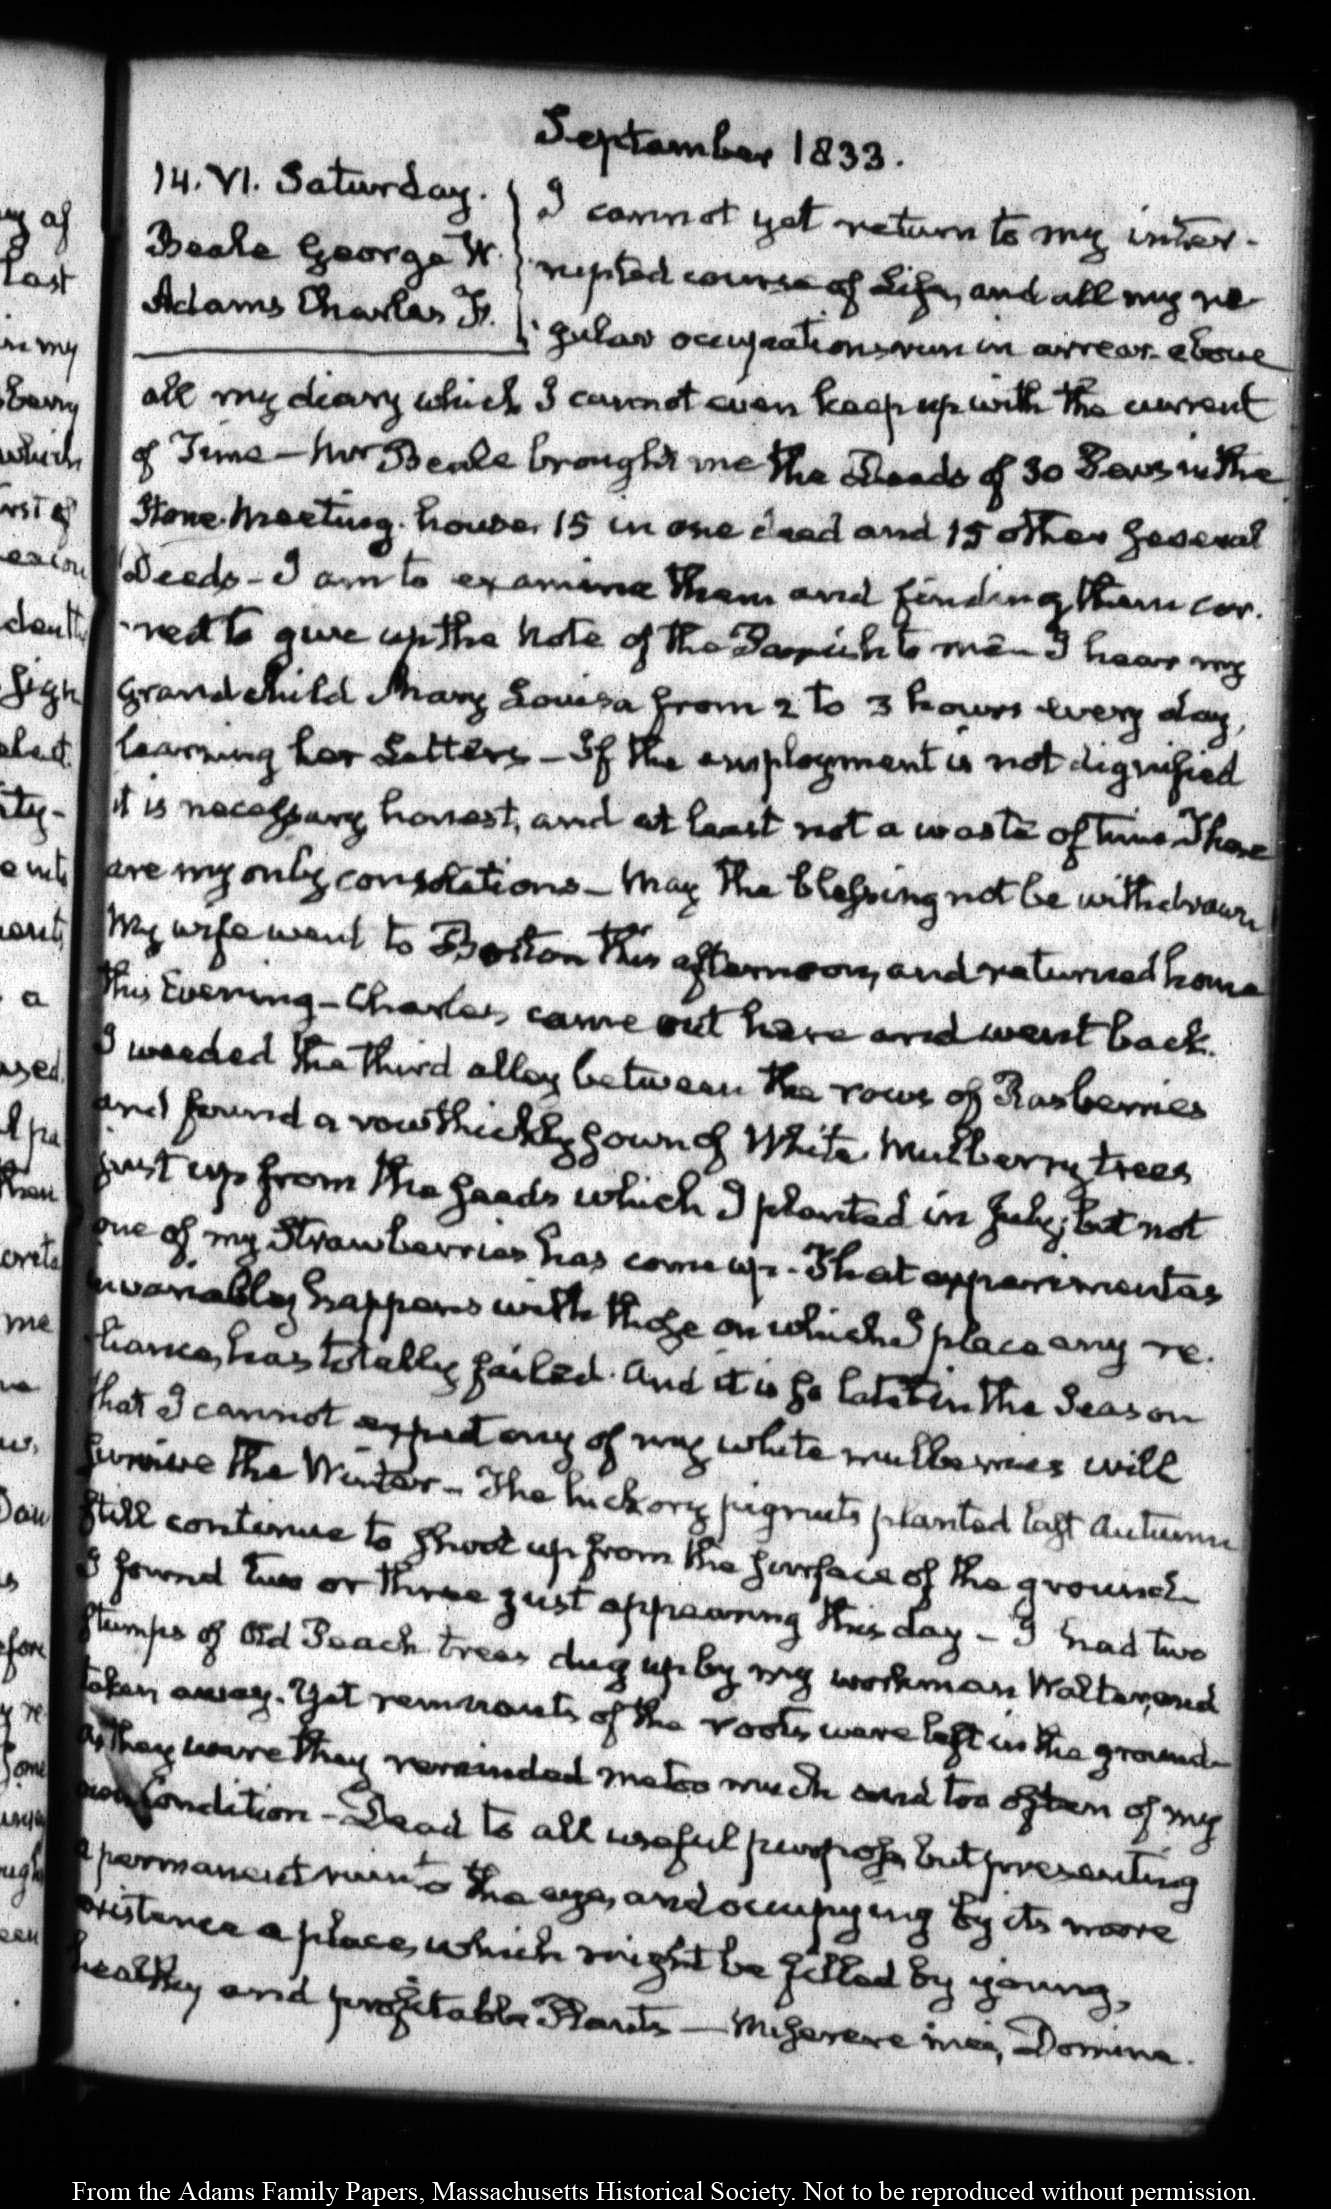 September 1833.
14. VI. Saturday.
Beale George W.
Adams Charles F.
I cannot yet return to my inter-
rupted course of Life, and all my re-
gular occupations run in arrear above
all my diary which I cannot even keep up with the current
of Time — Mr Beale brought me the Deeds of 30 Pews in the
Stone Meeting-house, 15 in one deed and 15 other several
Deeds — I am to examine them and finding them cor-
rect to give up the Note of the Parish to me — I hear my
grandchild Mary Louisa from 2 to 3 hours every day,
learning her Letters — If the employment is not dignified
it is necessary, honest, and at least not a waste of time. These
are my only consolations — May the blessing not be withdrawn
My wife went to Boston this afternoon, and returned home
this Evening — Charles came out here and went back.
I weeded the third alley between the rows of Rasberries
and found a row thickly sown of White Mulberry trees
just up from the seeds which I planted in July; but not
one of my Strawberries has come up. That experiment as
invariably happens with those on which I place any re-
liance, has totally failed. And it is so late in the Season
that I cannot expect any of my white mulberries will
survive the Winter — The hickory pignuts planted last Autumn
still continue to shoot up from the surface of the ground.
I found two or three just appearing this day — I had two
stumps of Old Peach trees dug up by my workman Walter, and
taken away. Yet remnants of the roots were left in the ground
as they were they reminded me too much and too often of my
own Condition — Dead to all useful purpose, but presenting
a permanent ruin to the eye, and occupying by its mere
existence a place, which might be filled by young,
healthy and profitable Plants — Miserere mei, Domine.
From the Adams Family Papers, Massachusetts Historical Society. Not to be reproduced without permission.